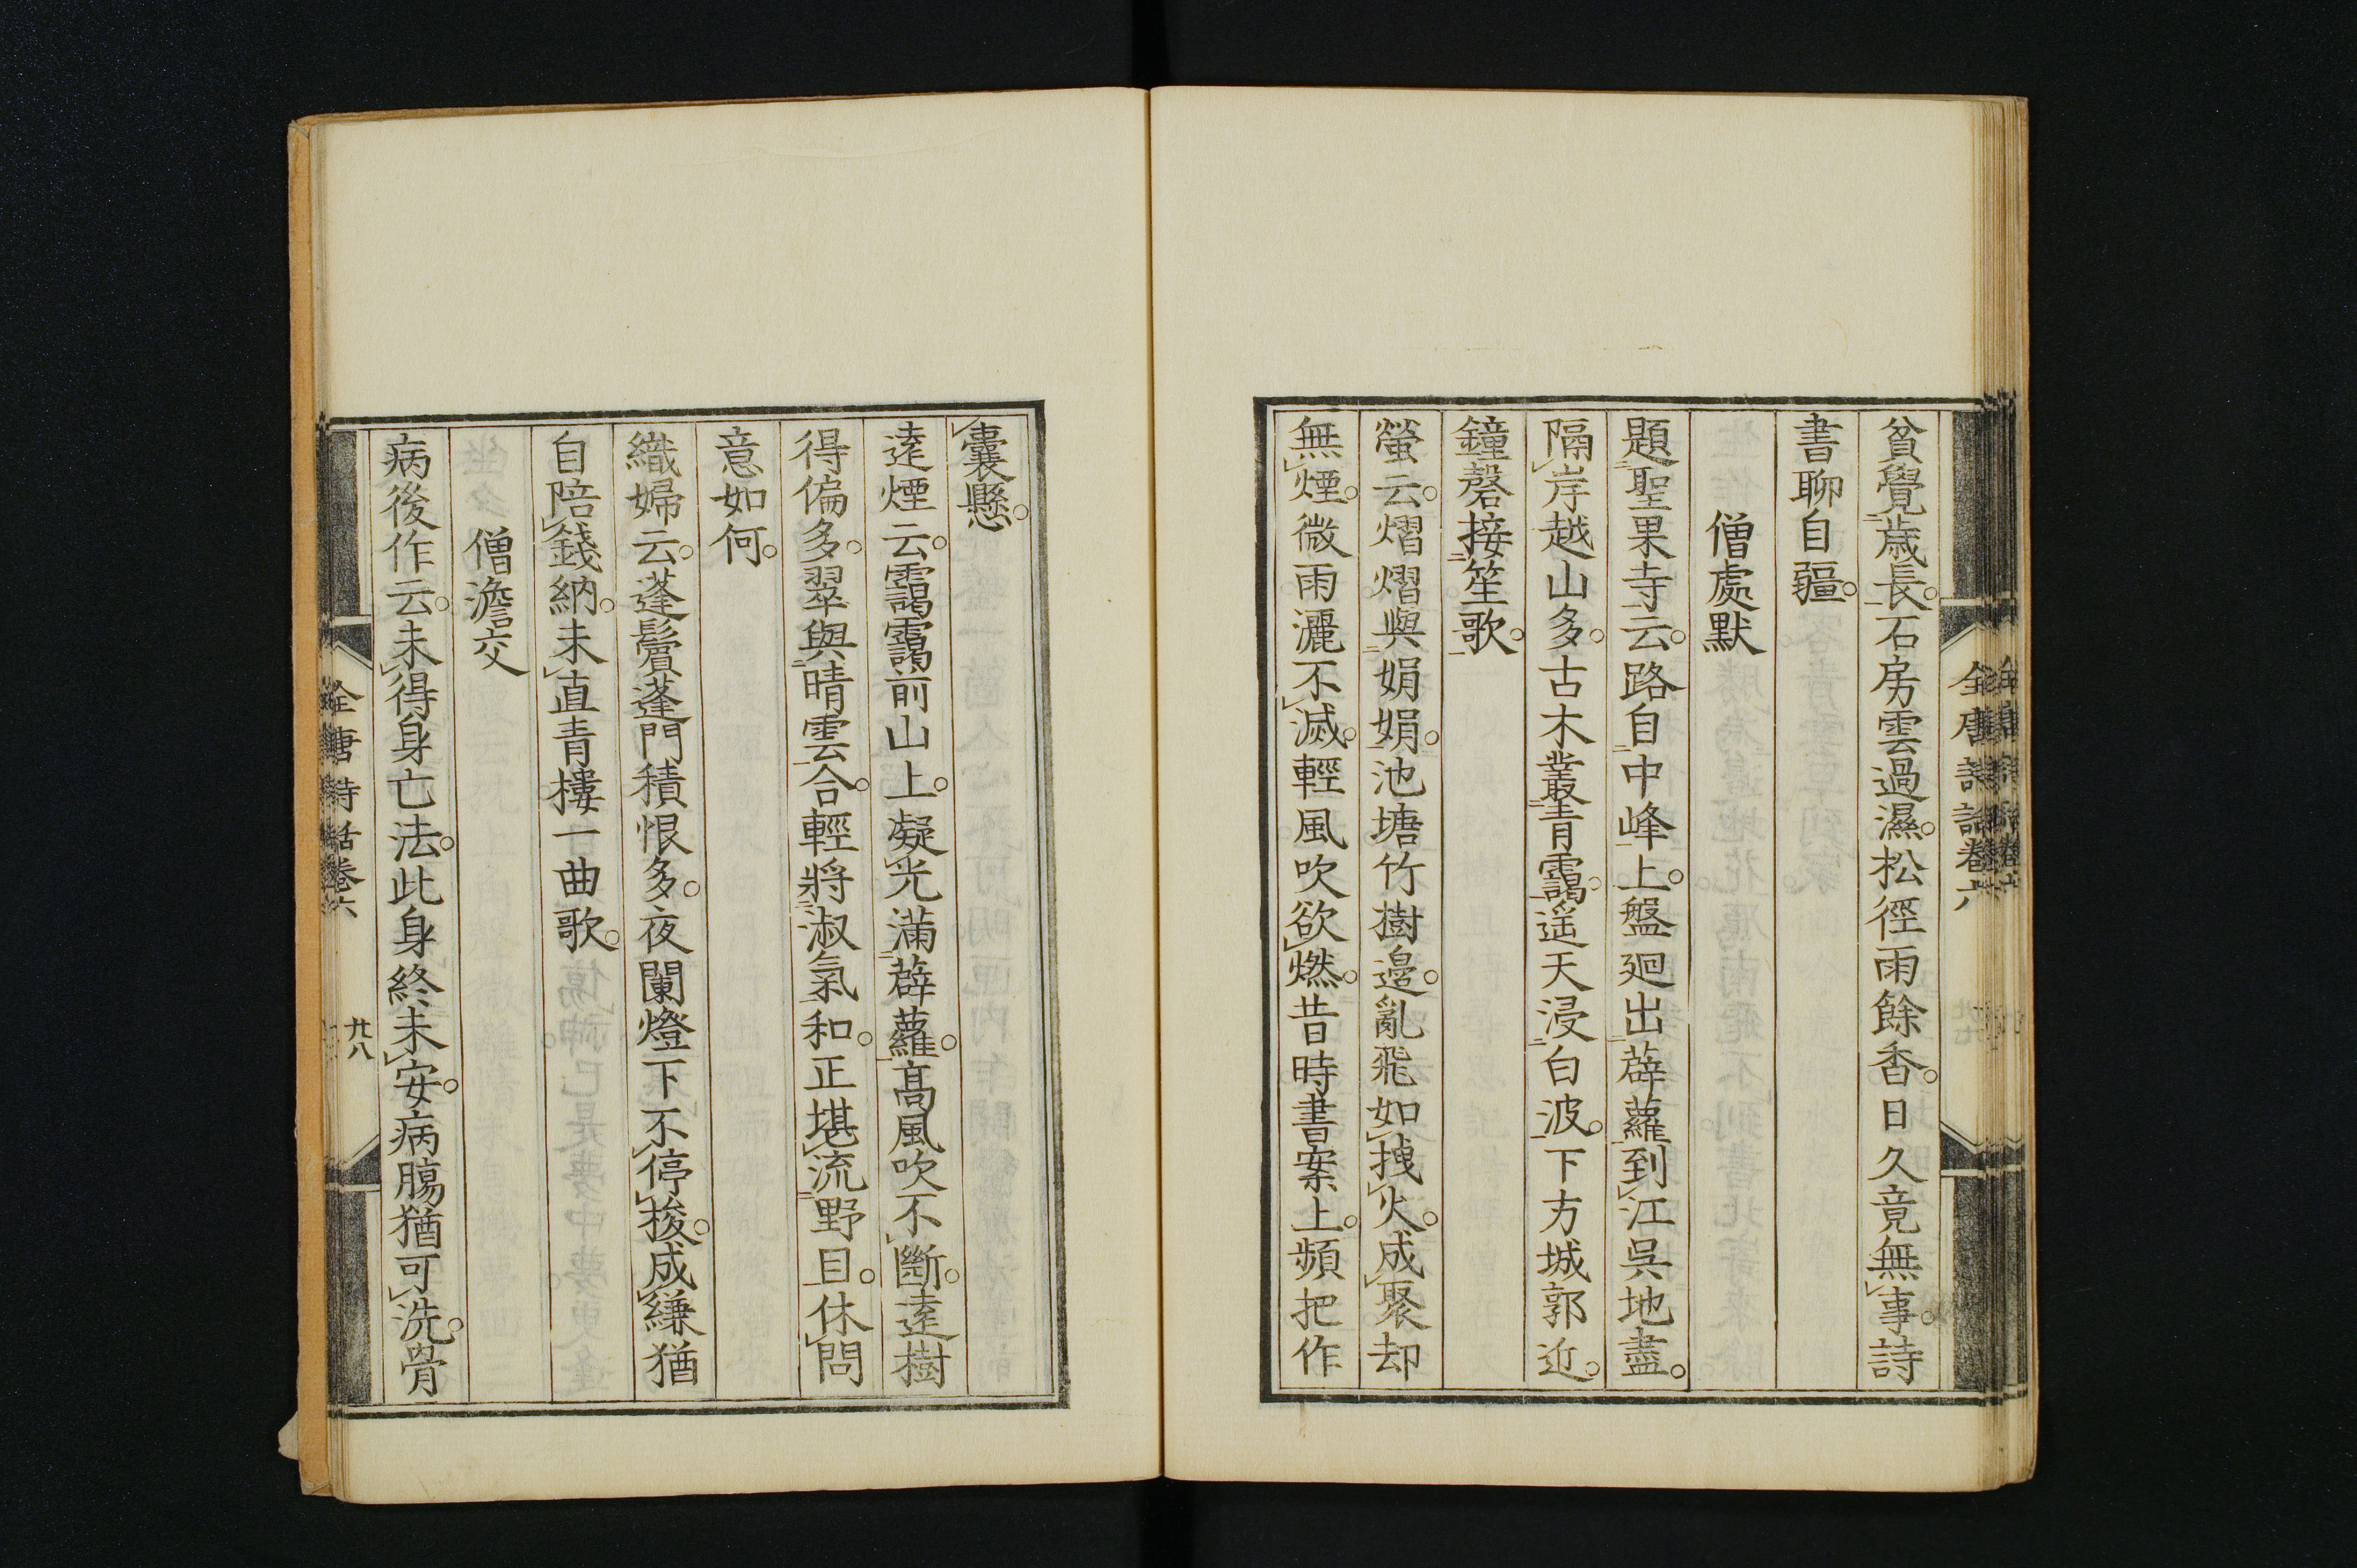 貧覺歳長。石房雲過濕。松徑雨餘香。日久竟無事。詩
書聊自疆。
僧處默
題聖果寺云。路自中峰上。盤廻出薜蘿到江吳地盡。
隔岸越山多。古木叢青靄。遥天浸白波。下方城郭近。
鐘磬接笙歌。
螢云。熠熠與娟娟。池塘竹樹邉。亂飛如拽火。成聚却
無煙。微雨灑不滅。輕風吹欲燃。昔時書案上。頻把作
囊懸。
遠煙云。靄靄前山上。凝光滿薜蘿。髙風吹不斷。遠樹
得偏多。翠與晴雲合。輕將淑氣和。正堪流野目。休問
意如何。
織婦云。蓬鬢蓬門積恨多。夜闌燈下不停梭。成縑猶
自陪錢納。未直青樓一曲歌。
僧澹交
病後作云。未得身亡法。此身終未安。病膓猶可洗。骨
全唐詩話卷六
全唐詩話卷六
廿八